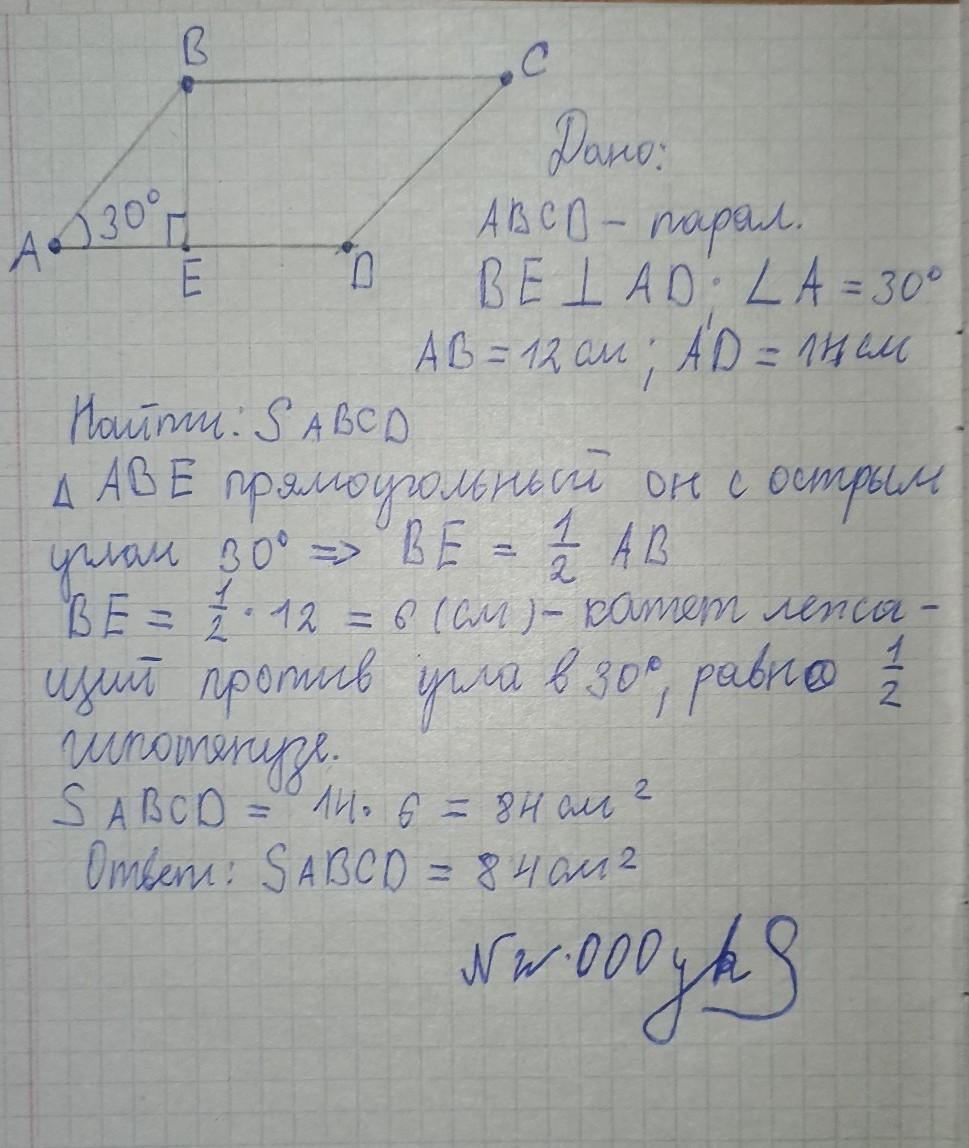 B
C
A
30°
E
D
Дано:
ABCD – парал.
BE ⊥ AD; ∠A = 30°
AB = 12 см; AD = 14 см
Найти: S ABCD
Δ ABE прямоугольный он с острым
углом 30° => BE = 1/2 AB
BE = 1/2 · 12 = 6 (см) – катет лежа-
щий против угла в 30°, равно 1/2
гипотенузе.
S ABCD = 14 · 6 = 84 см²
Ответ: S ABCD = 84 см²